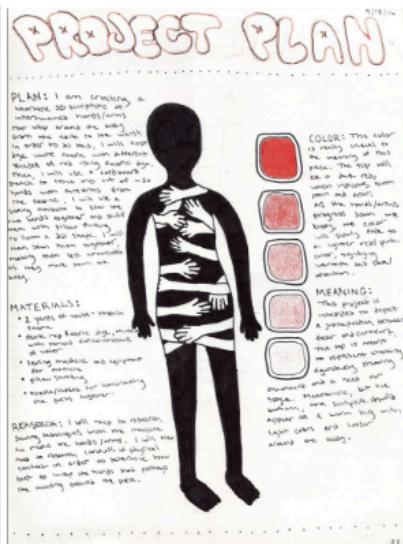 9/18/16
PROJECT PLAN
PLAN: I am creating a
wearable 3D sculpture of
intertwined hands/arms
that wrap around the body
from the neck to the waist.
In order to do this, I will first
dye white fabric with different
shades of red using fabric dye.
Then, I will use a cardboard
stencil to trace and cut out ~20
hands with forearms from
the fabric. I will use a
sewing machine to sew the
hands together and stuff
them with pillow stuffing
to form a 3D shape. I will
then sew them together,
making them
they move down the
body.
MATERIALS:
• 2 yards of white stretch
fabric
• dark red fabric dye, mixed
with various concentrations
of water
• sewing machine and equipment
for machine
• pillow stuffing
• needle/thread for
the arms together
RESEARCH: I will need to research
sewing techniques with the machine
to make the hands/arms. I will also
need to research physical
contact in order to determine how
best to wrap the hands that
the meaning behind the piece.
COLOR: The color
is really crucial to
the meaning of this
piece. The top will
be a dark red,
which indicates both
pain and fear.
As the hands/arms
progress down the
body, the color
will slowly fade to
a lighter red/pink
color, implying
warmth and
MEANING:
This project is
intended to depict
a juxtaposition between
fear and comfort.
The top is meant
to represent choking,
and a need for
escape. Meanwhile, at the
bottom, the sculpture should
appear as a warm hug with
light colors and looser
around the body.